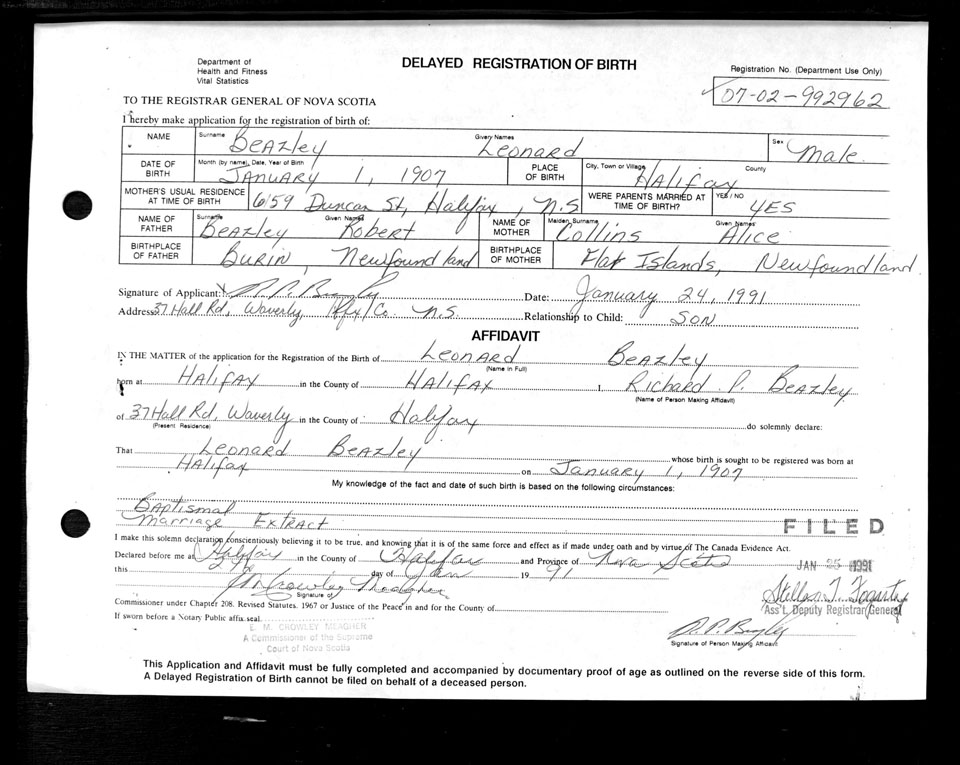 Department of
Health and Fitness
Vital Statistics
DELAYED REGISTRATION OF BIRTH
Registration No. (Department Use Only)
07-02-992962
TO THE REGISTRAR GENERAL OF NOVA SCOTIA
I hereby make application for the registration of birth of:
NAME Surname Beazley Given Names Leonard Sex Male
DATE OF BIRTH Month (by name), Date, Year of Birth January 1, 1907 PLACE OF BIRTH City, Town or Village Halifax County
MOTHER'S USUAL RESIDENCE AT TIME OF BIRTH 6159 Duncan St, Halifax, N.S WERE PARENTS MARRIED AT TIME OF BIRTH? YES / NO YES
NAME OF FATHER Surname Beazley Given Names Robert NAME OF MOTHER Maiden Surname Collins Given Names Alice
BIRTHPLACE OF FATHER Burin, Newfoundland BIRTHPLACE OF MOTHER Flat Islands, Newfoundland
Signature of Applicant: Date: January 24, 1991
Address: 37 Hall Rd, Waverly, Hfx Co. N.S. Relationship to Child: SON
AFFIDAVIT
IN THE MATTER of the application for the Registration of the Birth of Leonard Beazley
(Name in Full)
born at Halifax in the County of Halifax I, Richard P. Beazley
(Name of Person Making Affidavit)
of 37 Hall Rd, Waverly in the County of Halifax do solemnly declare:
(Present Residence)
That Leonard Beazley whose birth is sought to be registered was born at
Halifax on January 1, 1907
My knowledge of the fact and date of such birth is based on the following circumstances:
Baptismal
Marriage Extract
FILED
I make this solemn declaration conscientiously believing it to be true, and knowing that it is of the same force and effect as if made under oath and by virtue of The Canada Evidence Act.
Declared before me at Halifax in the County of Halifax and Province of Nova Scotia
JAN 25 1991
this day of Jan 19 91
Signature of
Commissioner under Chapter 208. Revised Statutes. 1967 or Justice of the Peace in and for the County of
Ass't. Deputy Registrar General
If sworn before a Notary Public affix seal
E. M. CROWLEY MEAGHER
A Commissioner of the Supreme
Court of Nova Scotia
Signature of Person Making Affidavit
This Application and Affidavit must be fully completed and accompanied by documentary proof of age as outlined on the reverse side of this form.
A Delayed Registration of Birth cannot be filed on behalf of a deceased person.